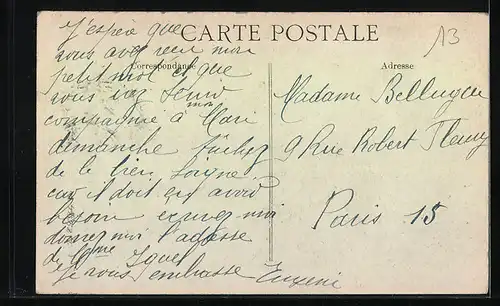 CARTE POSTALE
A3
Correspondance
Adresse
J'espère que
vous avez reçu mon
petit mot et que
vous irez
mon
compagnie à
dimanche tâchez
de le bien soigner
car il doit en avoir
besoin
donnez moi l'adresse
de Mme
Je vous embrasse Eugénie
Madame
9 Rue Robert Fleury
Paris 15